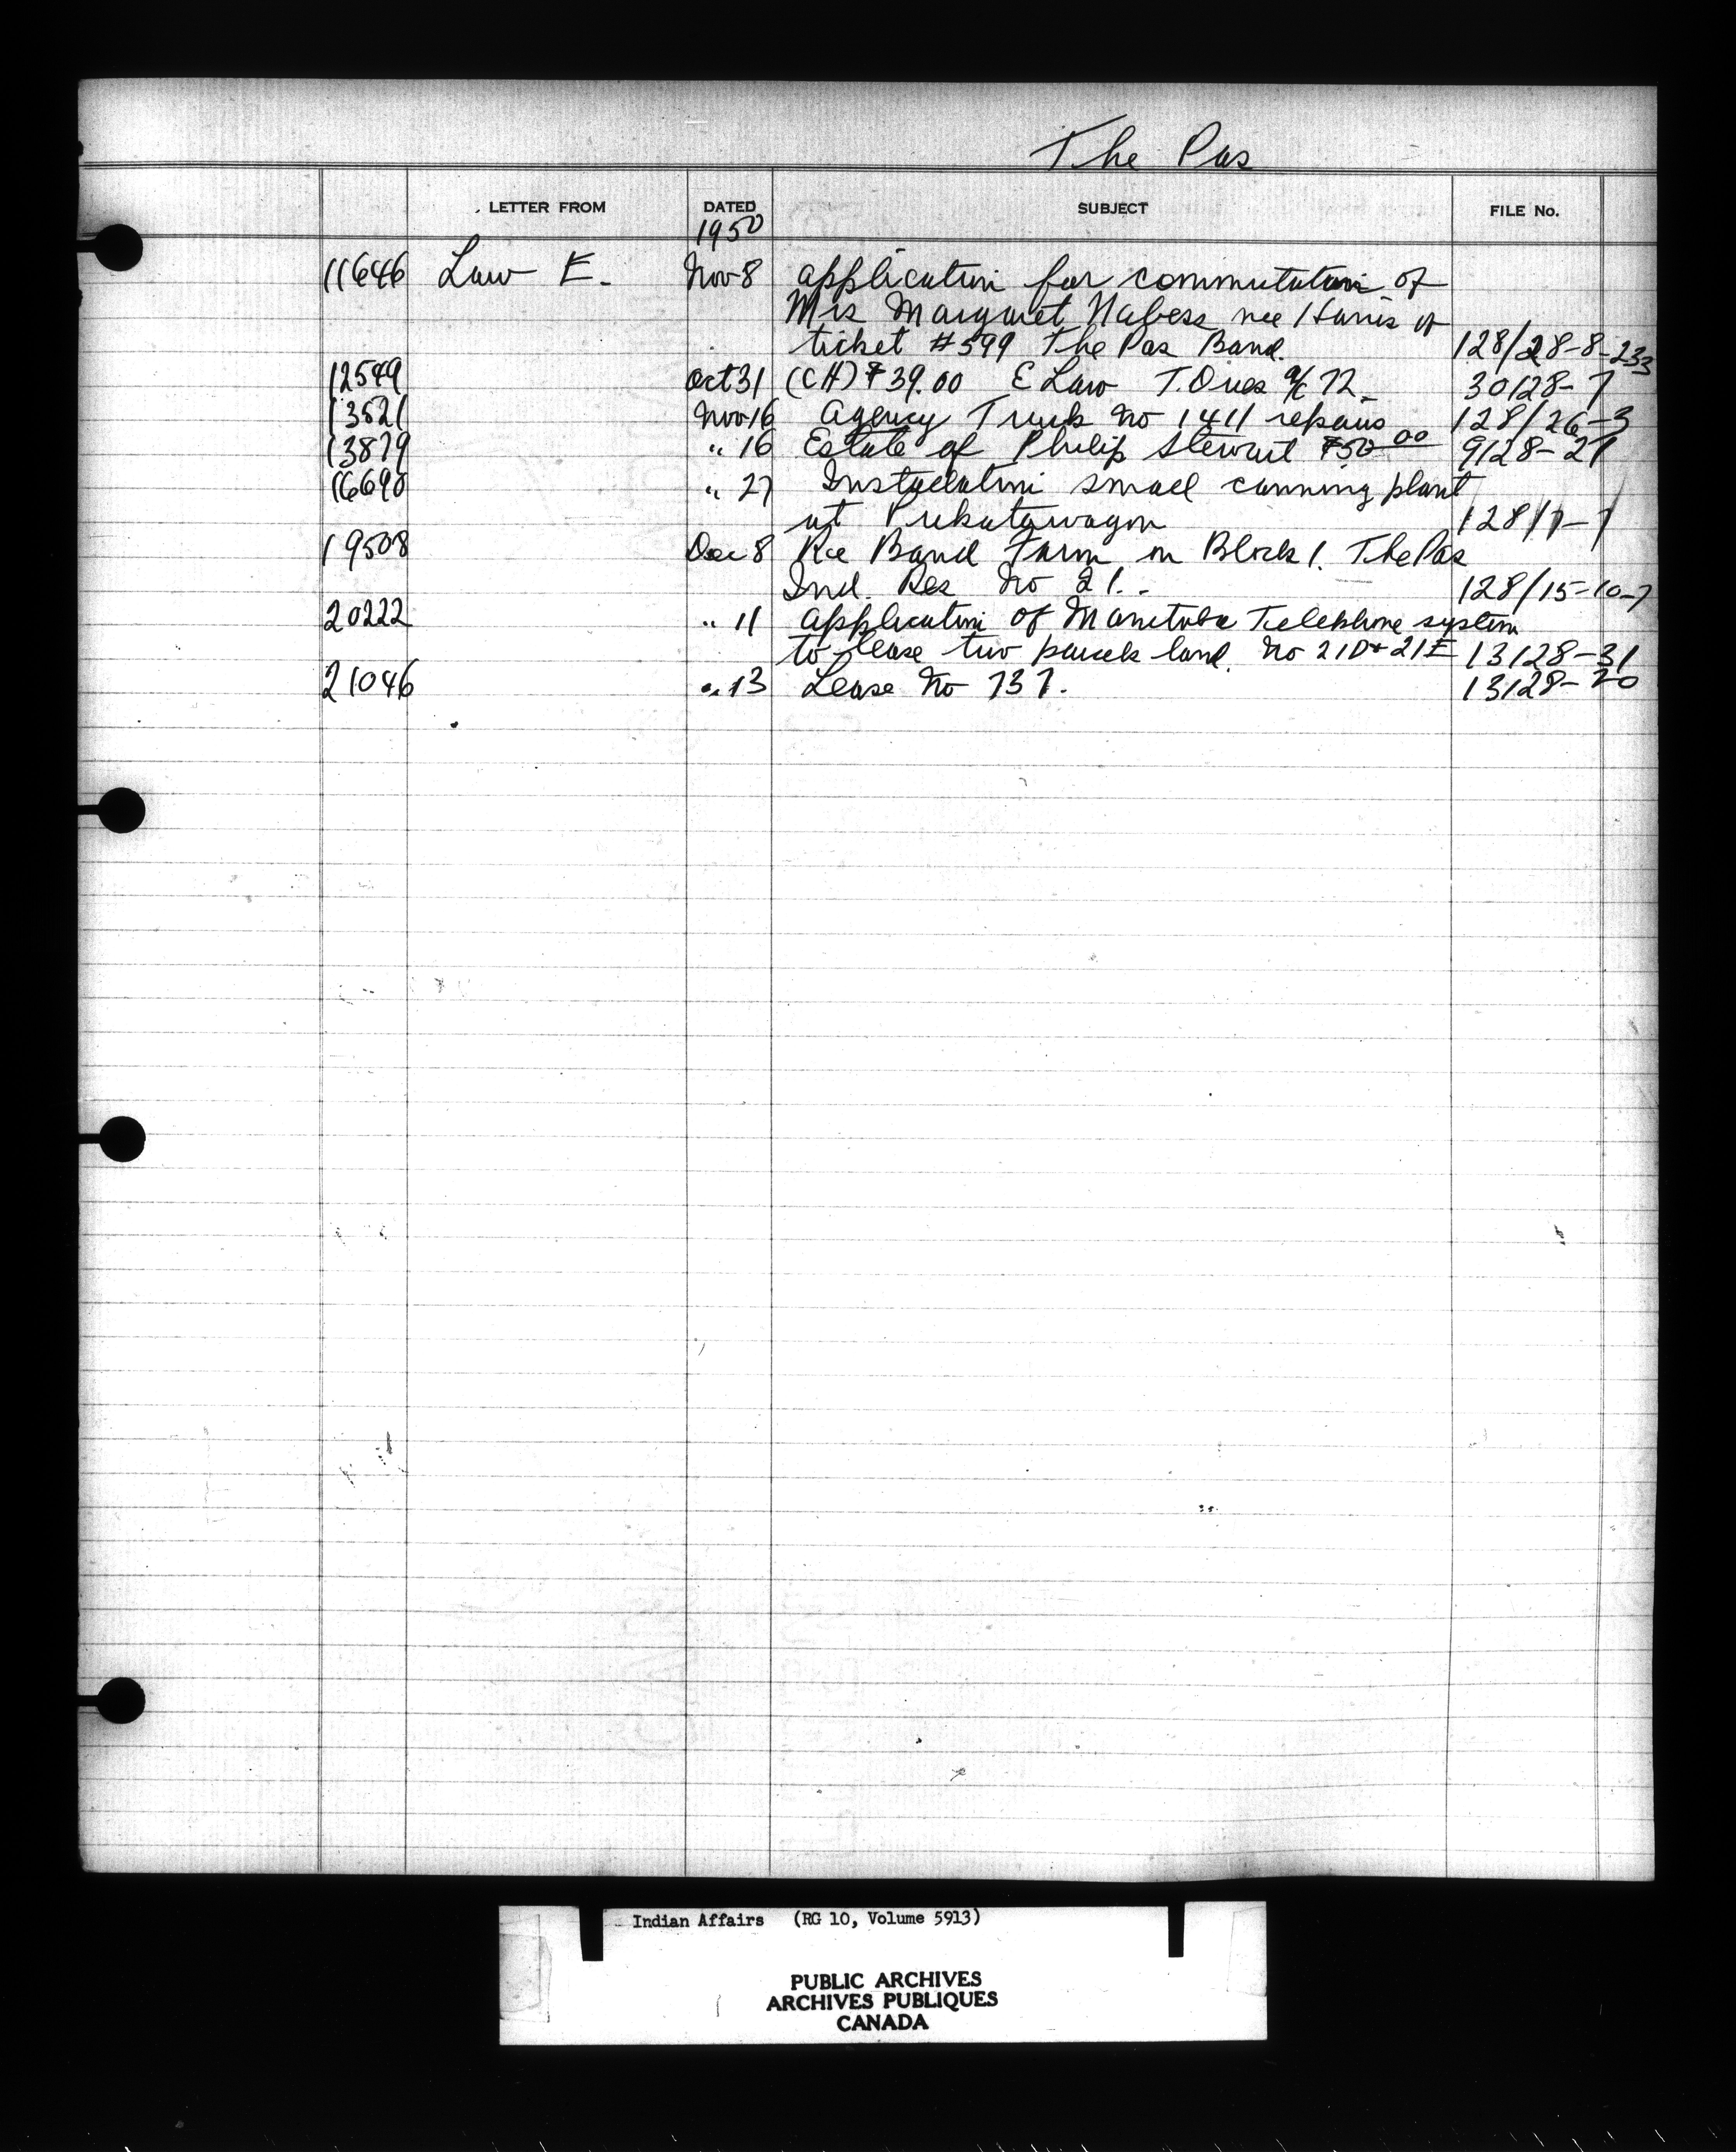 The Pas
LETTER FROM DATED SUBJECT FILE No.
1950
11646 Law E. Nov 8 application for commutation of
Mrs Margaret Nabess nee Harris of
ticket #599 The Pas Band. 128/28-8-233
12549 Oct 31 (CH) $39.00 E Law T. Ques a/c 72_ 30128-7
13521 Nov 16 Agency Truck No 1411 repairs 128/26-3
13879 " 16 Estate of Philip Stewart $50 00 9128-27
16690 " 27 Installation small canning plant
at Pukatawagon 128/7-7
19508 Dec 8 Re Band Farm on Block 1. The Pas
Ind. Res No 21.- 128/15-10-7
20222 " 11 application of Manitoba Telephone system
to lease two parcels land. No 21D + 21E 13128-31
21046 " 13 Lease No 737. 13128-20
Indian Affairs (RG 10, Volume 5913)
PUBLIC ARCHIVES
ARCHIVES PUBLIQUES
CANADA